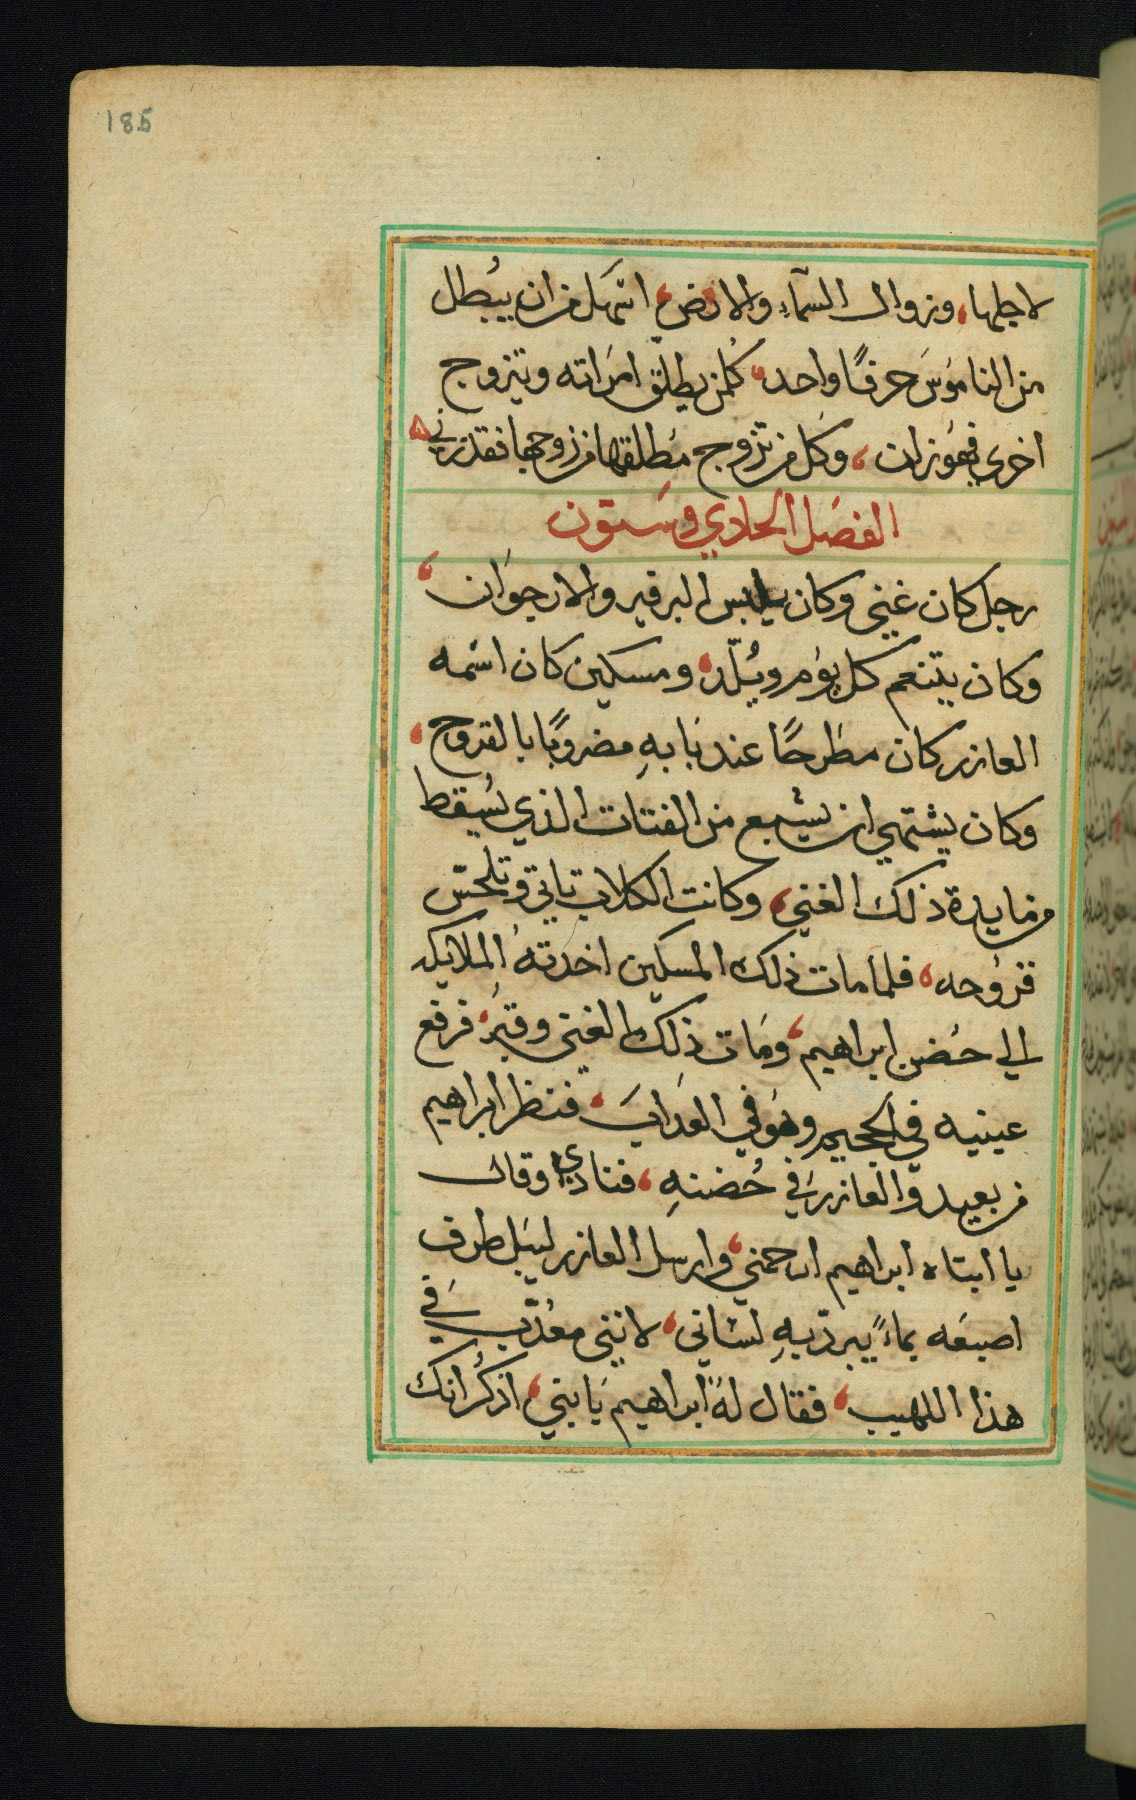 185
لاجلها، وزوال السمآء والارض، اسهل من ان يبُطل
من الناموُسَ حرفًا واحد، كُلمن يطلّق امرَاته ويتزوج
اخري فهوُ زان، وَكل من تزوج مُطلقها من زوجها فقد زني
الفصَل الحادي وسَتون
رجل كان غني وكان يلبس البرفير والارجوَان،
وكان يتنعم كل يوُم ويُلّد، ومسكين كان اسمه
العازر كان مطَرحًا عند بَابهِ مضروبًا بالقروح،
وكان يشتهي ان يشبع من الفتات الذي يُسقط
من مايدة ذلك الغني، وكانت الكلاب تاتي وتلحسّ
قروُحه، فلما مات ذلك المسكين اخدتهُ الملايكه
الي حضُن ابراهيم، ومَات ذلك الغني وقبُر، فرفع
عينيه في الجحيم وهوُ في العدابَ، فنظر ابراهيم
من بعيد والعازر في حُضنهِ، فنادي وقال
يا ابتاه ابراهيم ارحمني، وارسل العازر ليبَل طرف
اصبعَه بماءً يبردّ بهِ لسَاني، لانني معُدّب في
هذا اللهيب، فقال لهُ ابراهيم يَا بني، اذكُر انك